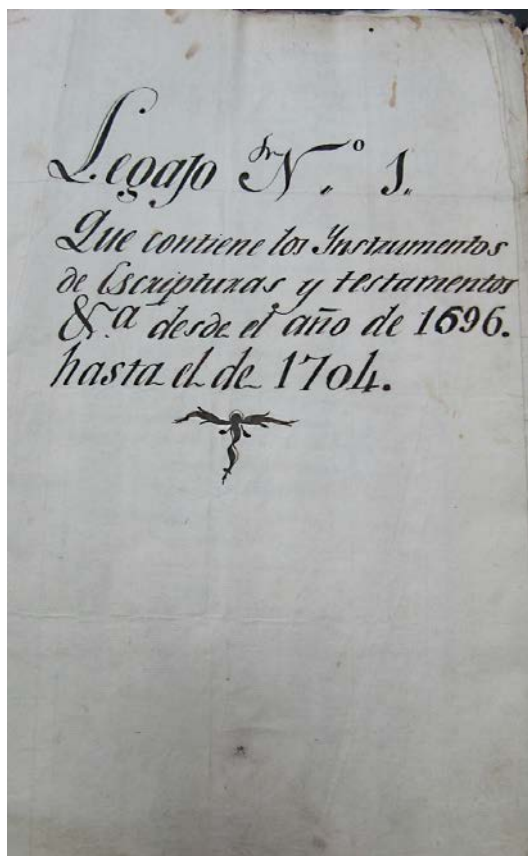 Legajo N.º 1.
Que contiene los Instrumentos
de Escripturas y testamentos
&.ª desde el año de 1696.
hasta el de 1704.